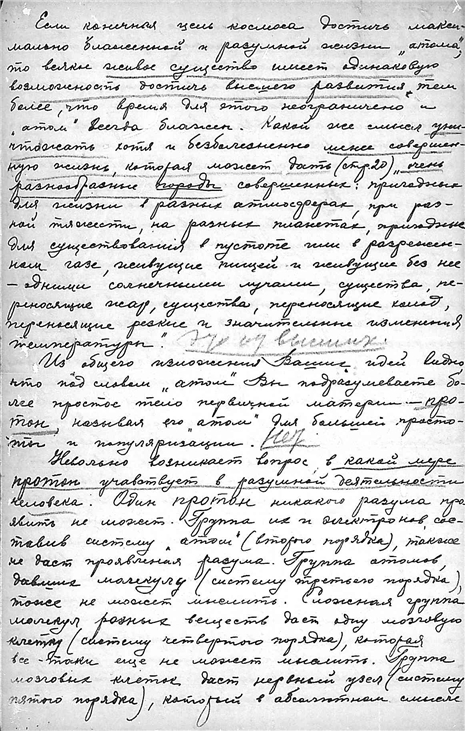 Если конечная цель космоса достичь макси-
мально блаженной и разумной жизни „атома",
то всякое живое существо имеет одинаковую
возможность достичь высшего развития, тем
более, что время для этого неограничено и
„атом" всегда блажен. Какой же смысл уни-
чтожать хотя и безболезненно менее совершен-
ную жизнь, которая может дать (стр 20) „очень
разнообразные породы совершенных: пригодных
для жизни в разных атмосферах, при раз-
ной тяжести, на разных планетах, пригодные
для существования в пустоте или в разрежен-
ном газе, живущие пищей и живущие без нее
— одними солнечными лучами, существа, пе-
реносящие жар, существа, переносящие холод,
переносящие резкие и значительные изменения
температуры". Это из высших.
Из общего изложения Ваших идей видно
что под словом „атом" Вы подразумеваете бо-
лее простое тело первичной материи — про-
тон, называя его „атом" для большей просто-
ты и популяризации. Нет.
Невольно возникает вопрос, в какой мере
протон учавствует в разумной деятельности
человека. Один протон никакого разума про
явить не может. Группа их и электронов, сос-
тавив систему „атом" (второго порядка), также
не даст проявления разума. Группа атомов,
давших молекулу (систему третьего порядка),
тоже не может мыслить. Сложная группа
молекул разных веществ даст одну мозговую
клетку (систему четвертого порядка), которая
все-таки еще не может мыслить. Группа
мозговых клеток даст нервный узел (систему
пятого порядка), который в абсолютном смысле